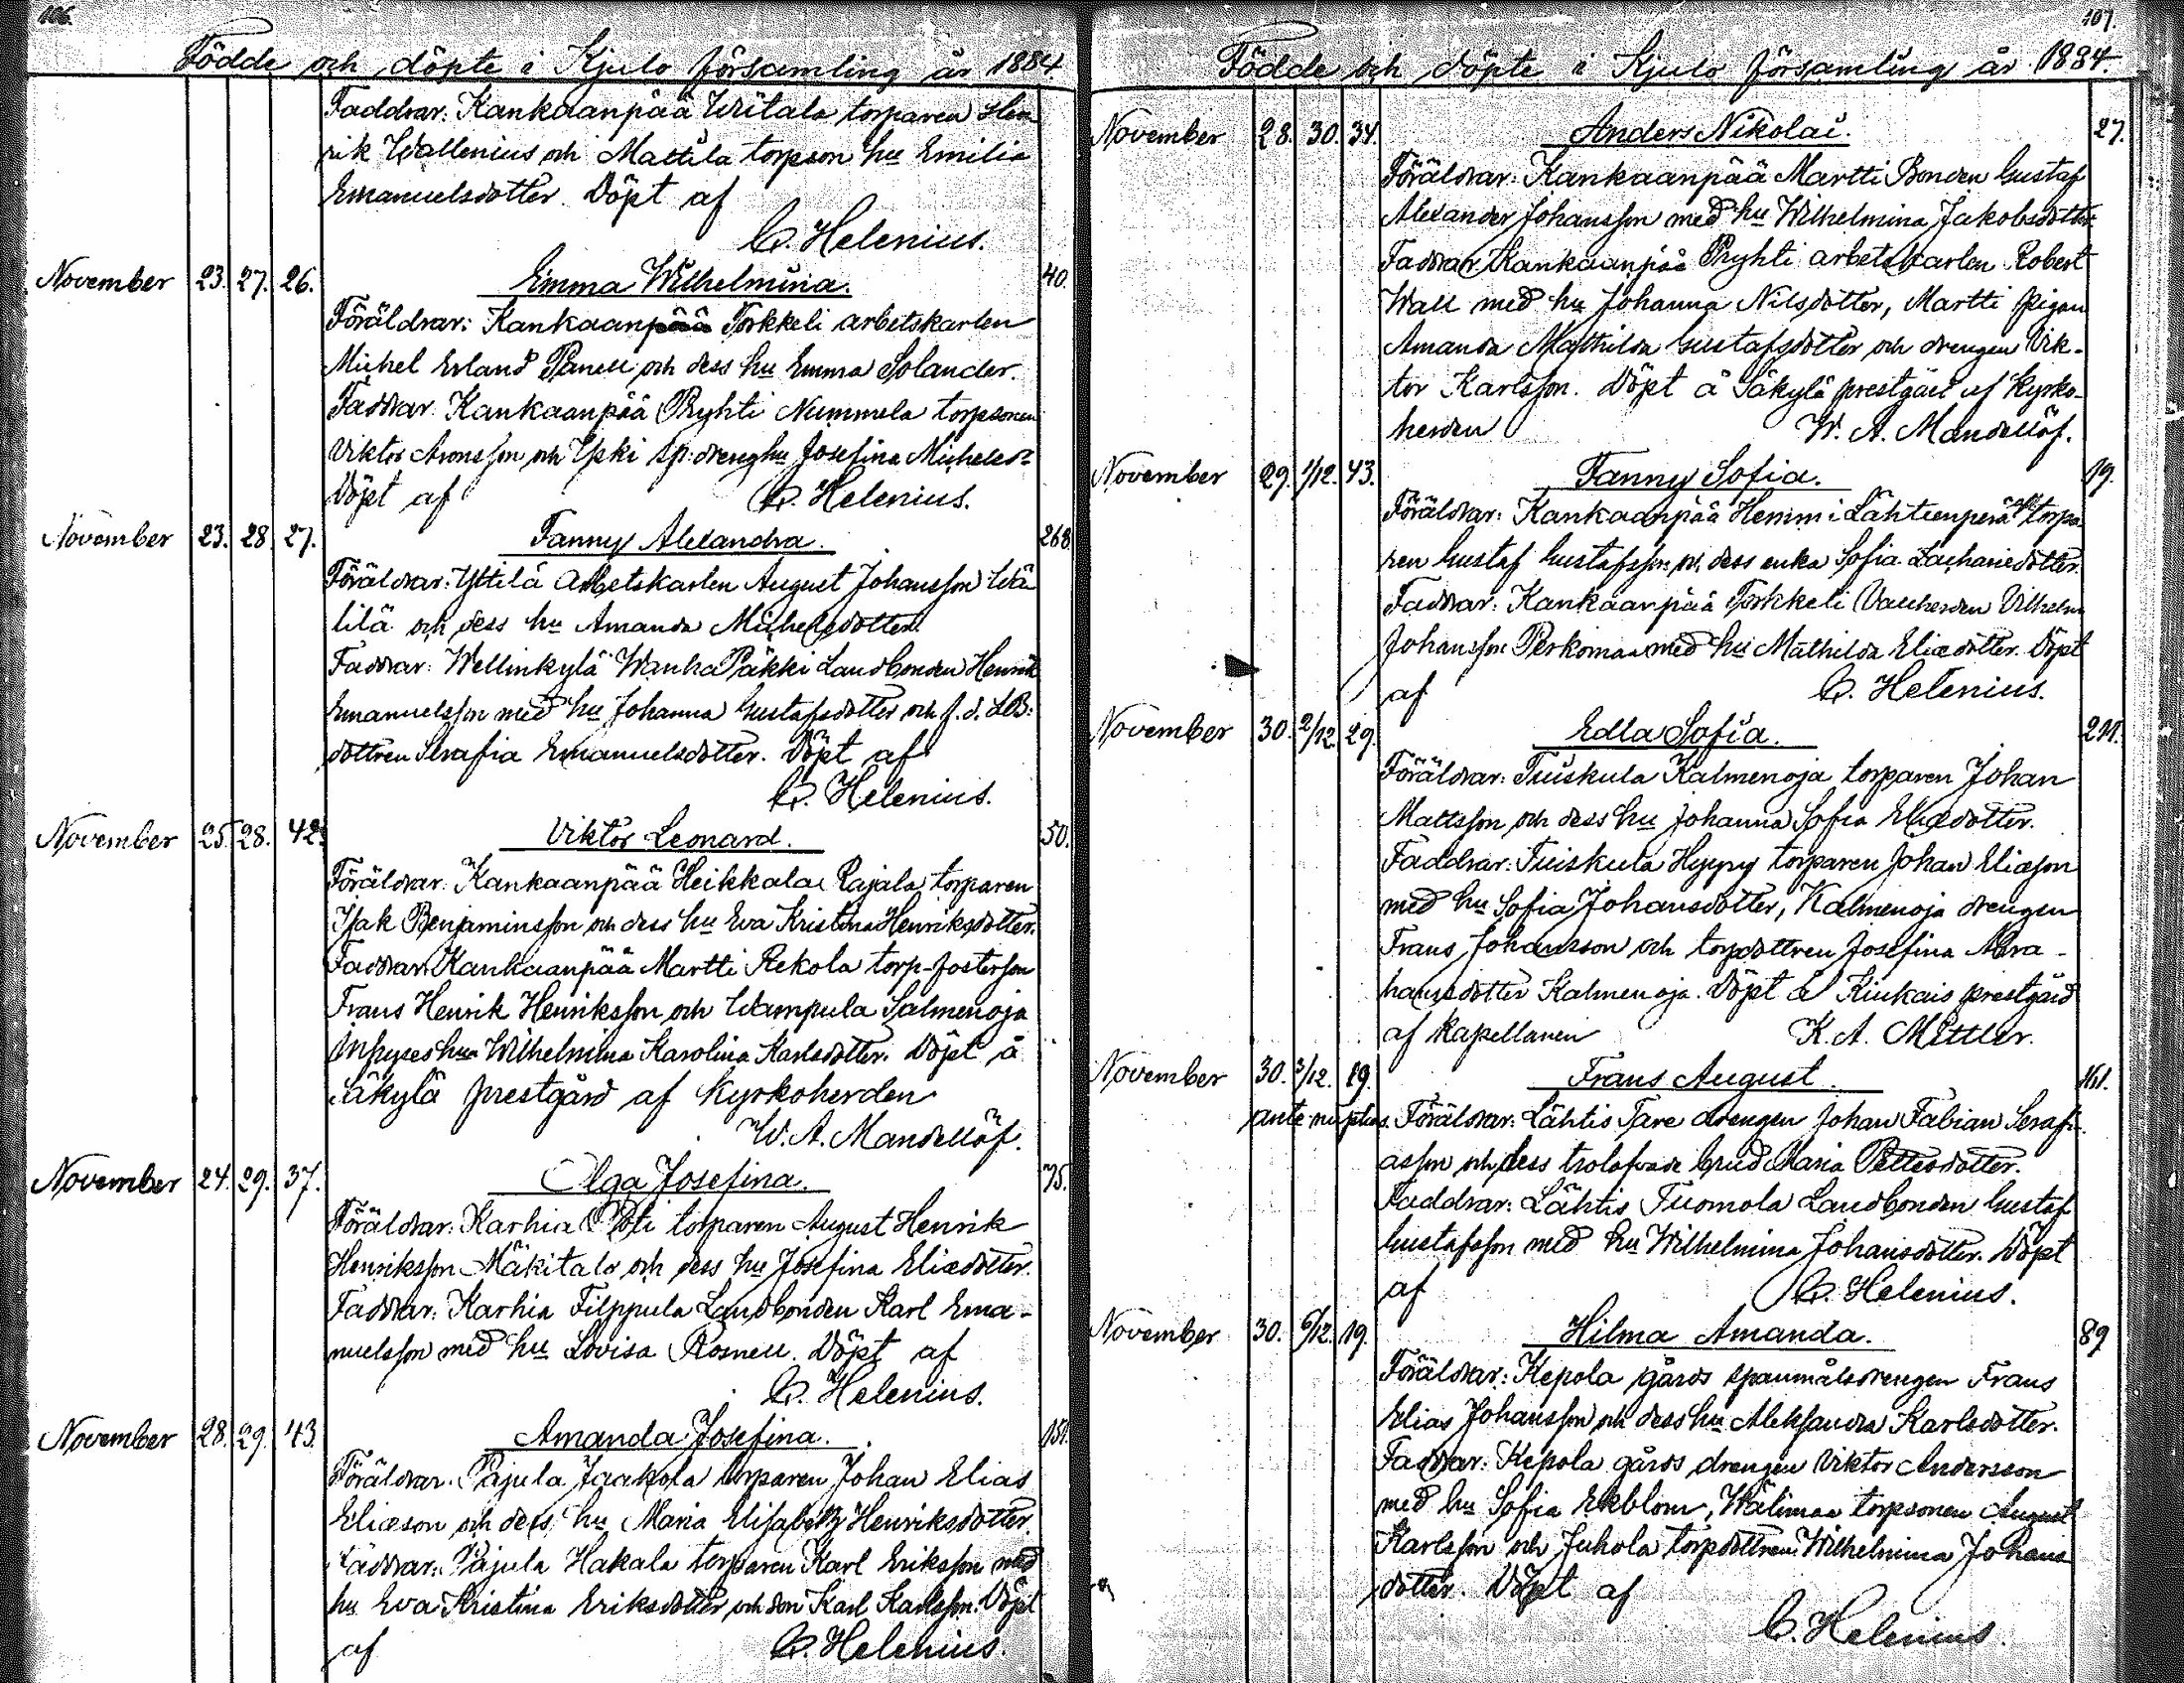 106.
Födde och döpte i Kjulo församling år 1884.
Faddrar: Kankaanpää Uutala torparen Hen
rik Wallenius och Mattila torpson hu Emilia
Emanuelsdotter. Döpt af
C. Helenius.
November 23. 27. 26. Emma Wilhelmina. 40.
Föräldrar: Kankaanpää Torkkeli arbetskarlen
Michel Erland Panell och dess hu Emma Solander.
Faddrar: Kankaanpää Pryhti Nummela torpsonen
Viktor Aronsson och Yski sp: dreng hu Josefina Michelsdr
Döpt af C. Helenius.
November 23. 28. 27. Fanny Alexandra. 268.
Föräldrar: Yttilä Arbetskarlen August Johansson Wä
lilä och dess hu Amanda Michelsdotter.
Faddrar: Wellinkylä Wanha Päkki Landbonden Henrik
Emanuelsson med hu Johanna Gustafsdotter och f. d. LB:
dottren Serafia Emanuelsdotter. Döpt af
C. Helenius.
November 25. 28. 42. Viktor Leonard. 50.
Föräldrar: Kankaanpää Heikkala Rajala torparen
Isak Benjaminsson och dess hu Eva Kristina Henriksdotter.
Faddrar: Kankaanpää Martti Rekola torp-fosterson
Frans Henrik Henriksson och Wampula Salmenoja
Inhyses hun Wilhelmina Karolina Karlsdotter. Döpt å
Säkylä prestgård af Kyrkoherden
W. A. Mandellöf.
November 24. 29. 37. Olga Josefina. 75.
Föräldrar: Karhia Poti torparen August Henrik
Henriksson Mäkitalo och dess hu Josefina Eliædotter.
Faddrar: Karhia Filppula Landbonden Karl Ema-
nuelsson med hu Lovisa Rosnell. Döpt af
C. Helenius.
November 28. 29. 43. Amanda Josefina. 151.
Föräldrar: Pajula Jaakola torparen Johan Elias
Eliæson och dess hu Maria Elisabeth Henriksdotter.
Faddrar: Pajula Hakala torparen Karl Eriksson med
hu Eva Kristina Eriksdotter och son Karl Karlsson. Döpt
af C. Helenius.
107.
Födde och döpte i Kjulo församling år 1884.
November 28. 30. 34. Anders Nikolai. 27.
Föräldrar: Kankaanpää Martti Bonden Gustaf
Alexander Johansson med hu Wilhelmina Jakobsdotter.
Faddrar: Kankaanpää Pryhti arbetskarlen Robert
Wall med hu Johanna Nilsdotter, Martti pigan
Amanda Mathilda Gustafsdotter och drengen Vik-
tor Karlsson. Döpt å Säkylä prestgård af Kyrko-
herden W. A. Mandellöf.
November 29. 1/12. 43. Fanny Sofia. 19.
Föräldrar: Kankaanpää Hemmi Lähteenperä torpa
ren Gustaf Gustafsson och dess enka Sofia Zachariedotter.
Faddrar: Kankaanpää Torkkeli Vallherden Vilhelm
Johansson Perkomaa med hu Mathilda Eliædotter. Döpt
af C. Helenius.
November 30. 2/12. 29. Edla Sofia. 211.
Föräldrar: Tuiskula Kalmenoja torparen Johan
Mattsson och dess hu Johanna Sofia Eliædotter.
Faddrar: Tuiskula Hyppy torparen Johan Eliæson
med hu Sofia Johansdotter, Kalmenoja drengen
Frans Johansson och torpdottren Josefina Abra-
hamsdotter Kalmenoja. Döpt å Kiukais prestgård
af Kapellanen K. A. Mittler.
November 30. 3/12. 19. Frans August. 161.
ante nuptias. Föräldrar: Lähtis Tare drengen Johan Fabian Serafi-
asson och dess trolofvade brud Maria Pettersdotter.
Faddrar: Lähtis Tuomola Landbonden Gustaf
Gustafsson med hu Wilhelmina Johansdotter. Döpt
af C. Helenius.
November 30. 6/12. 19. Hilma Amanda. 89
Föräldrar: Kepola gårds spanmålsdrengen Frans
Elias Johansson och dess hu Aleksandra Karlsdotter.
Faddrar: Kepola gårds drengen Viktor Andersson
med hu Sofia Ekblom, Wälimaa torpsonen August
Karlsson och Juhola torpdottren Wilhelmina Johans
dotter. Döpt af
C. Helenius.